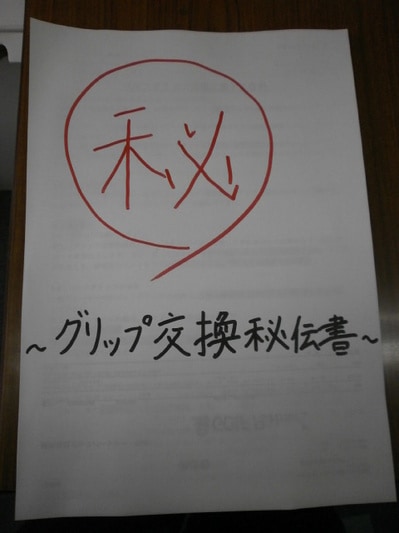 秘
～グリップ交換秘伝書～